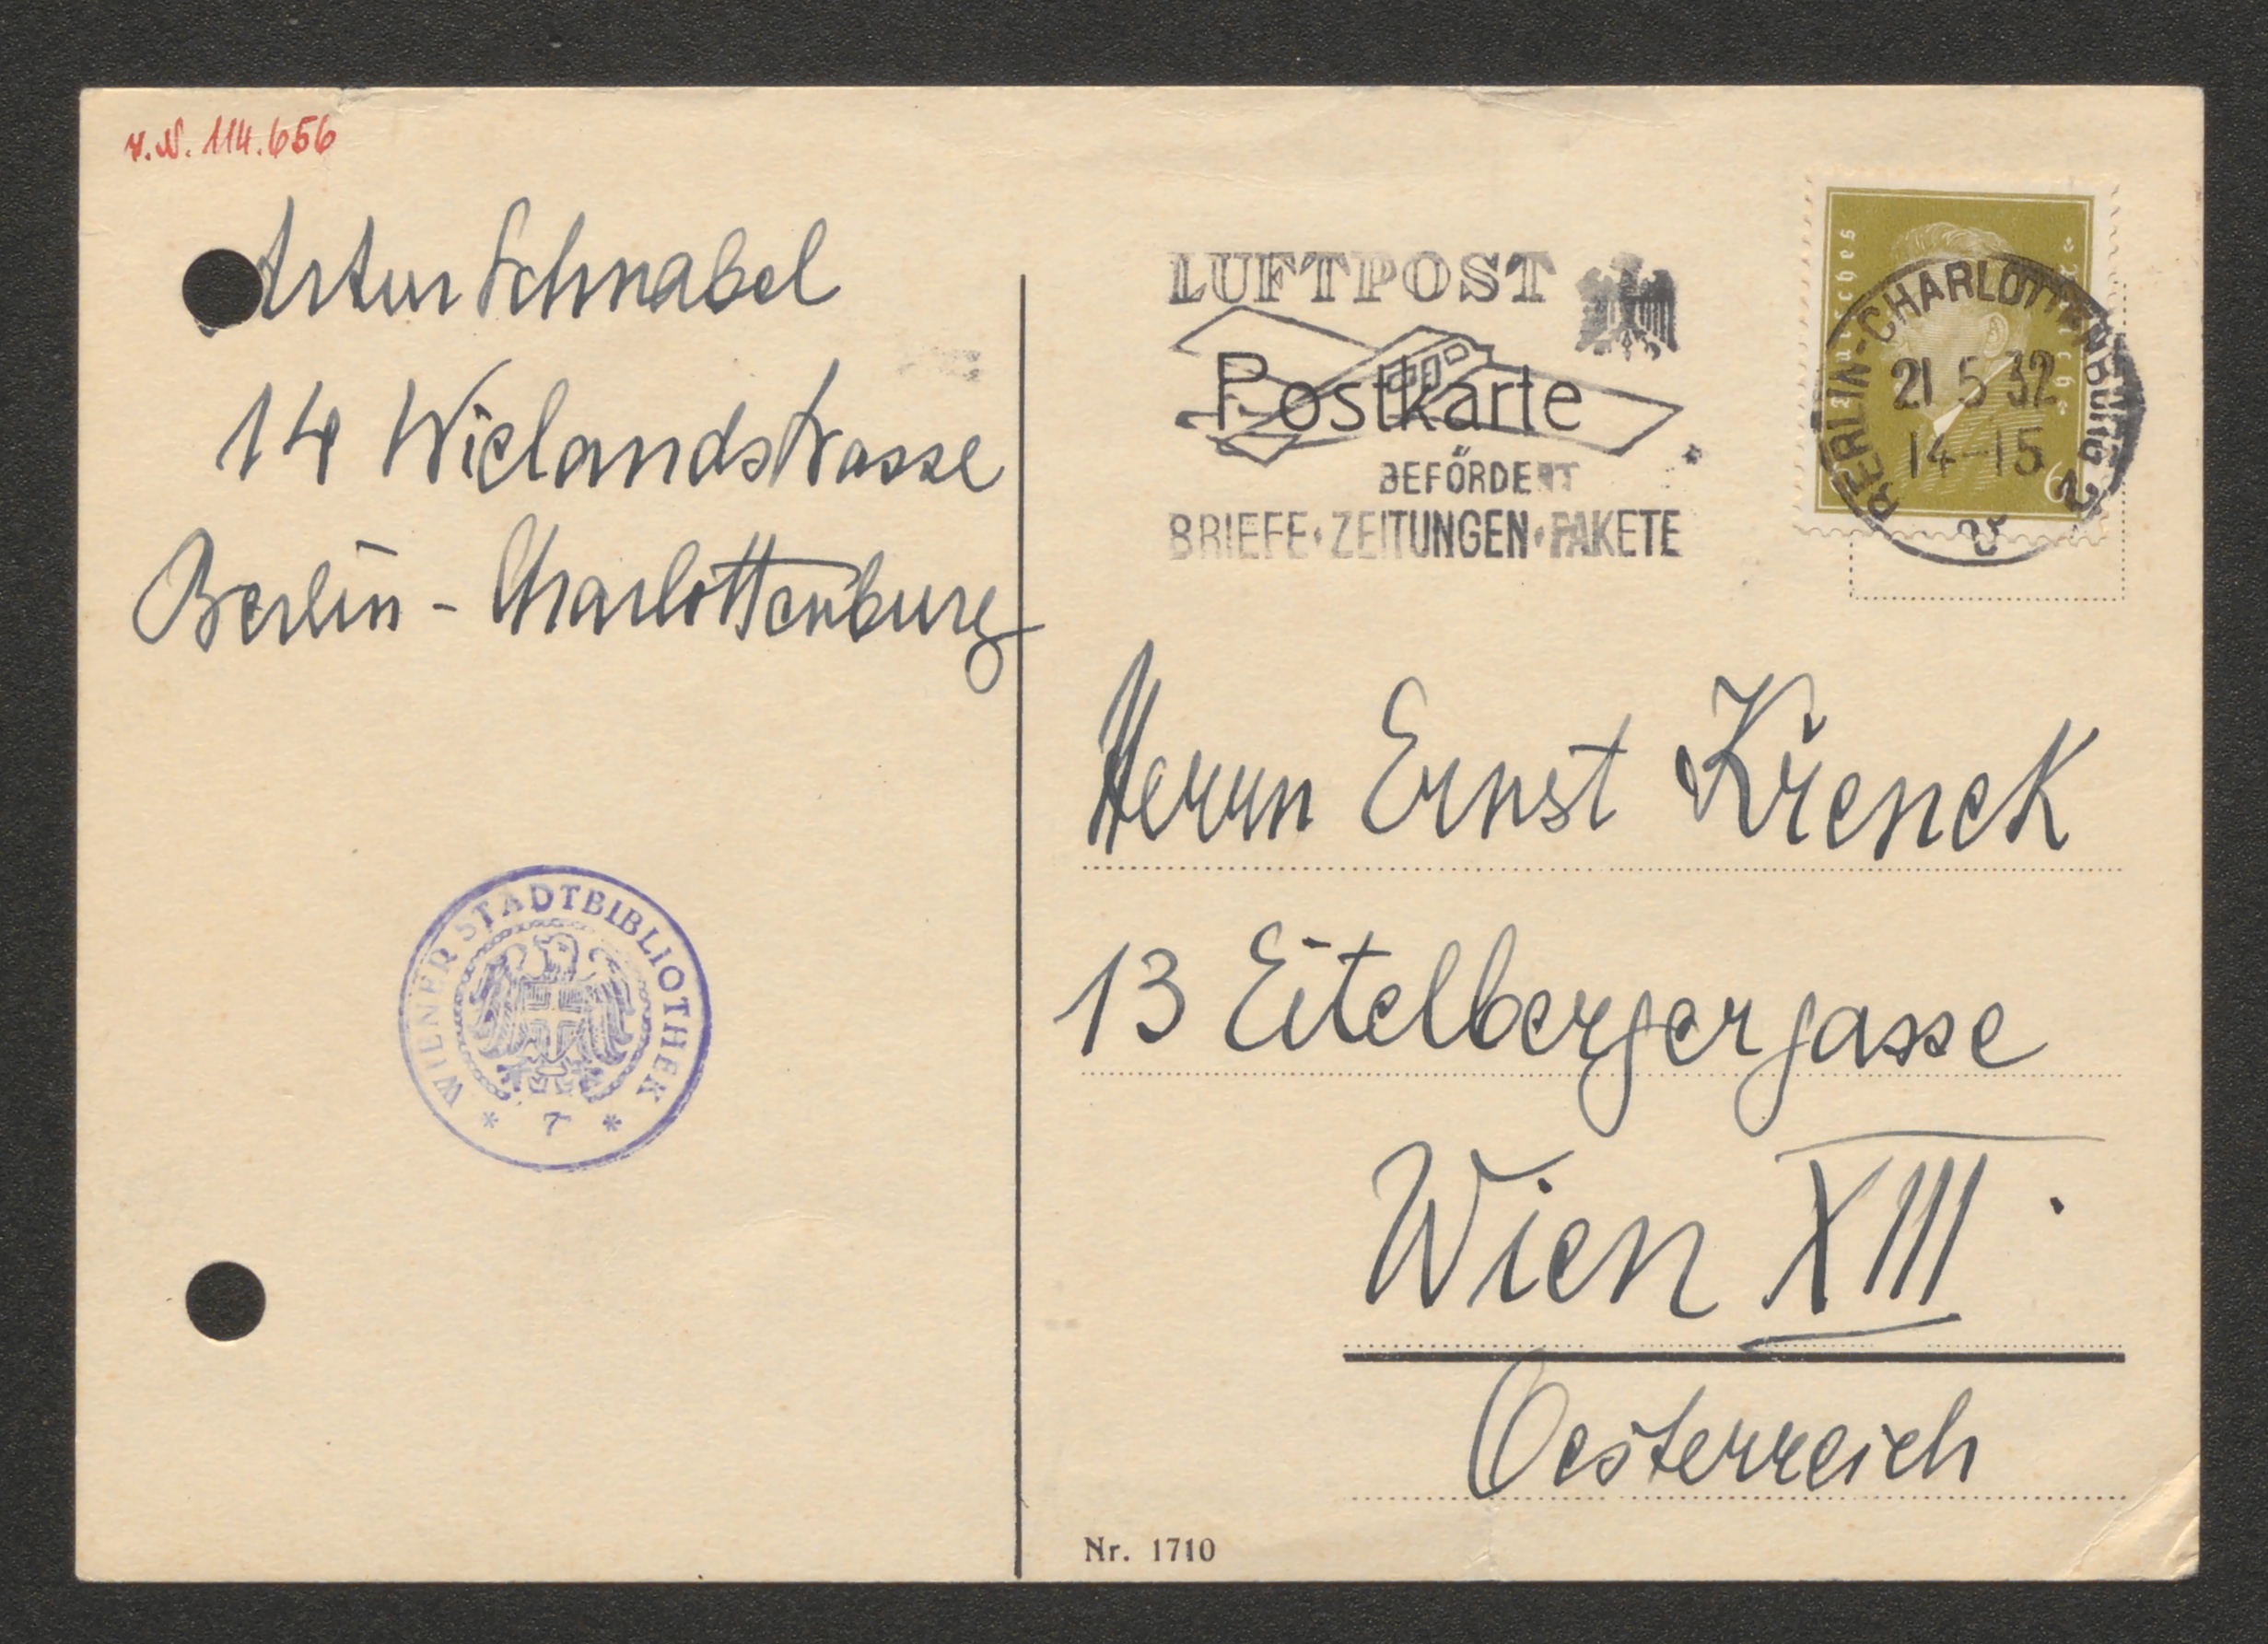 H.N. 114.656
Artur Schnabel
14 Wielandstrasse
Berlin - Charlottenburg
WIENER STADTBIBLIOTHEK
* 7 *
LUFTPOST
Postkarte
BEFÖRDERT
BRIEFE · ZEITUNGEN · PAKETE
BERLIN-CHARLOTTENBURG 2
21 5 32
14-15
Herrn Ernst Křenek
13 Eitelbergergasse
Wien XIII.
Oesterreich
Nr. 1710